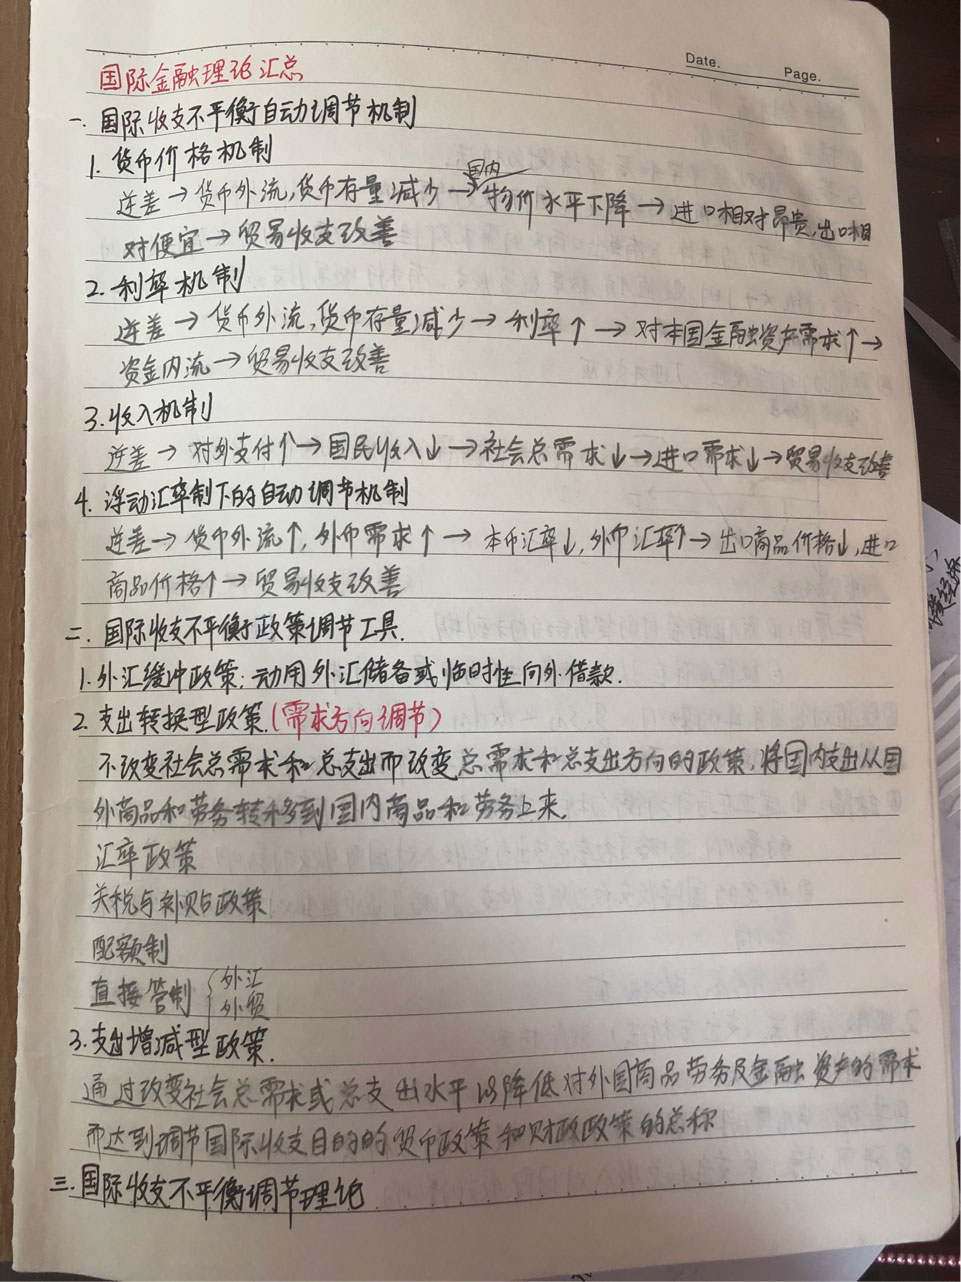 Date.
Page.
国际金融理论汇总
一. 国际收支不平衡自动调节机制
1. 货币价格机制
国内
逆差→货币外流,货币存量减少→物价水平下降→进口相对昂贵,出口相
对便宜→贸易收支改善
2. 利率机制
逆差→货币外流,货币存量减少→利率↑→对本国金融资产需求↑→
资金内流→贸易收支改善
3. 收入机制
逆差→对外支付↑→国民收入↓→社会总需求↓→进口需求↓→贸易收支改善
4. 浮动汇率制下的自动调节机制
逆差→货币外流↑,外币需求↑→本币汇率↓,外币汇率↑→出口商品价格↓,进口
商品价格↑→贸易收支改善
二. 国际收支不平衡政策调节工具.
1. 外汇缓冲政策: 动用外汇储备或临时性向外借款.
2. 支出转换型政策.(需求方向调节)
不改变社会总需求和总支出而改变总需求和总支出方向的政策,将国内支出从国
外商品和劳务转移到国内商品和劳务上来.
汇率政策
关税与补贴政策
配额制
直接管制{外汇
外贸
3. 支出增减型政策.
通过改变社会总需求或总支出水平以降低对外国商品劳务及金融资产的需求
而达到调节国际收支目的的货币政策和财政政策的总称
三. 国际收支不平衡调节理论